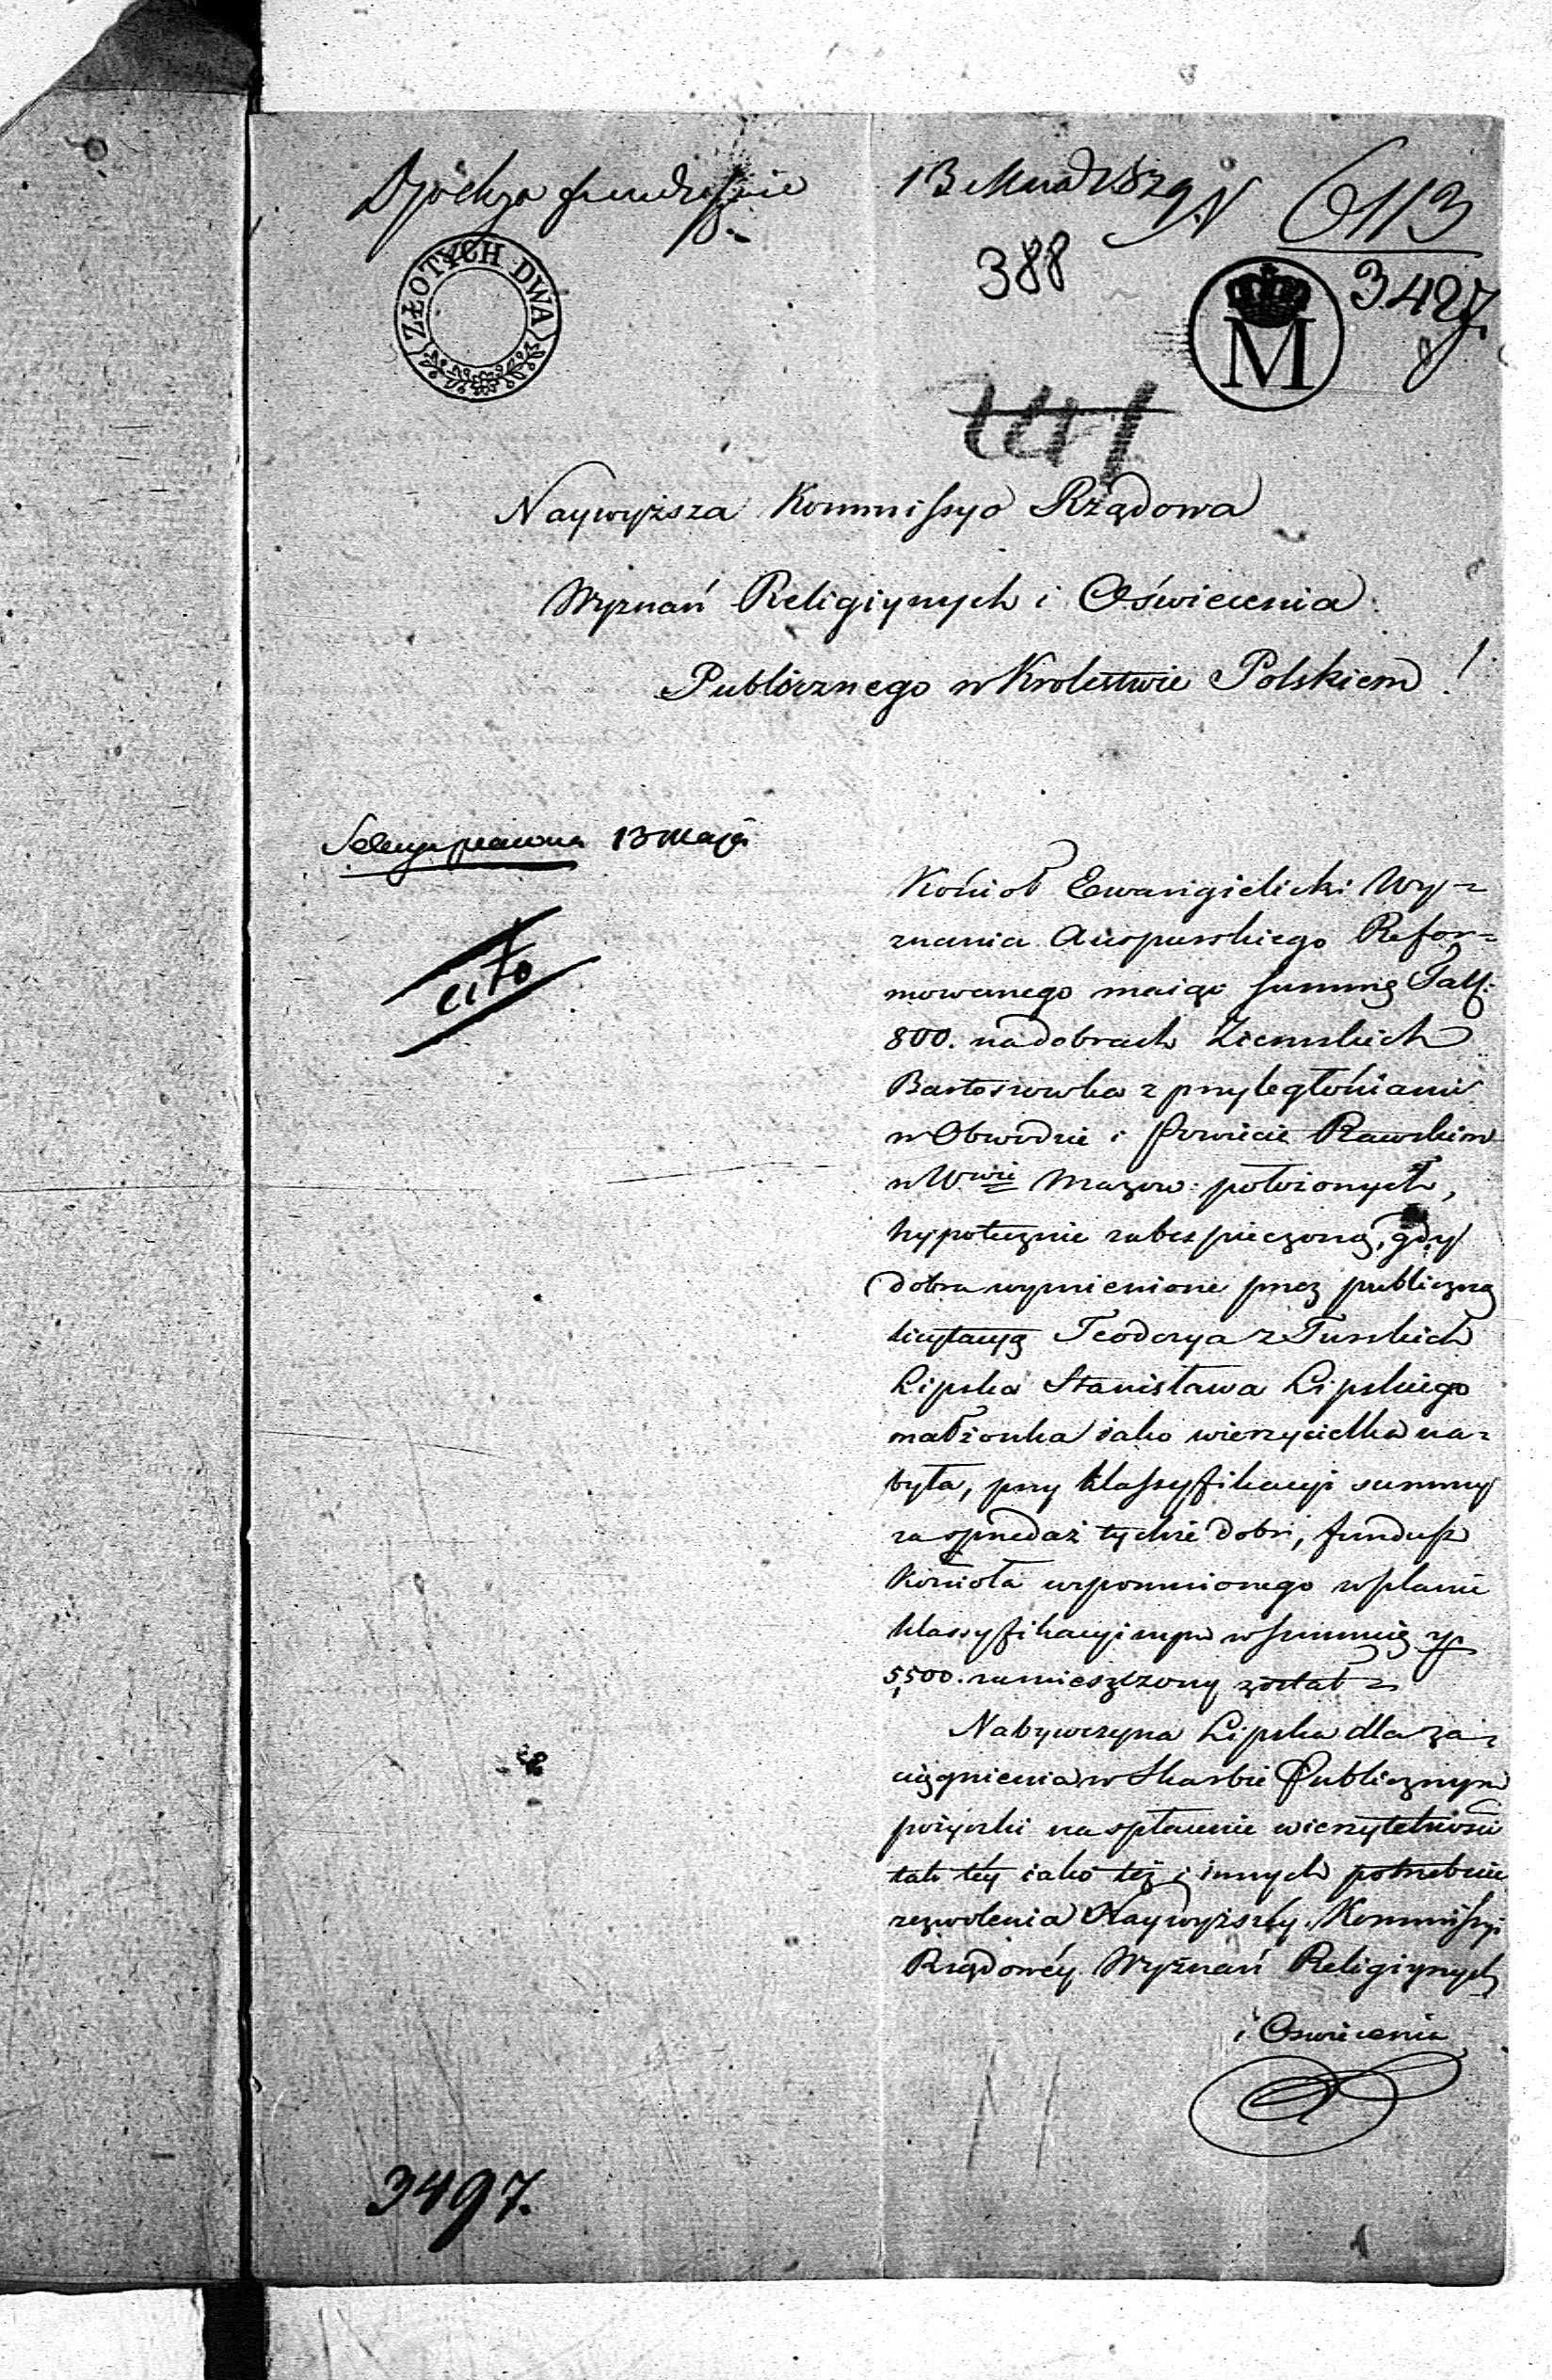 13 Maia 1829 N 6113
388
3427.
ZŁOTYCH DWA
M
Naywyższa Kommissya Rządowa
Wyznań Religiynych i Oświecenia
Publicznego w Krolestwie Polskiem!
Sekcya prawna 13 Maja
cito
Kościoł Ewangielicki Wy=
znania Auspurskiego Refor=
mowanego maiąc summę Tall:
800. na dobrach Ziemskich
Bartoszowka z przyległościami
w Obwodzie i Powiecie Rawskim
w Wwie Mazow: położonych,
hypotecznie zabespieczoną, gdy
dobra wymienione przez publiczną
licytacyą Teodorya z Turskich
Lipska Stanisława Lipskiego
małżonka iako wierzycielka na=
była, przy klassyfikacyi summy
za sprzedaż tychże Dobr, fundusz
Kościoła wspomnionego w planie
klassyfikacyinym w summie zp
5,500. zamieszczony został
Nabywczyna Lipska dla za=
ciągnienia w Skarbie Publicznym
pożyczki na spłacenie wierzytelności
tak tey iako też i innych potrzebuie
zezwolenia Naywyższéy Kommissyi
Rządowéy Wyznań Religiynych
i Oswiecenia
3497.